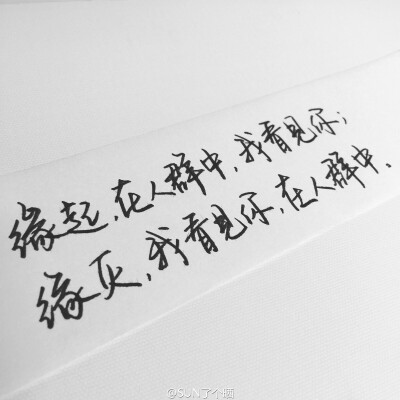 缘起,在人群中,我看见你;
缘灭,我看见你,在人群中。
@SUN了个喵